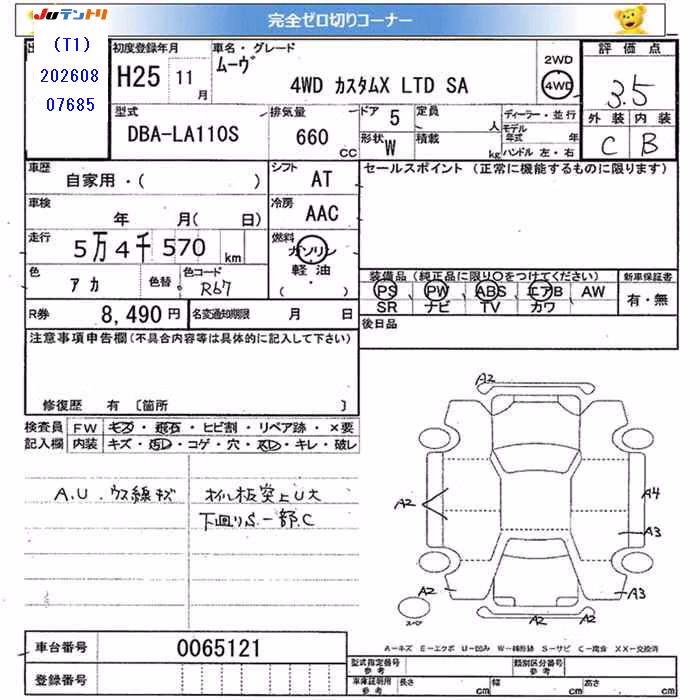 JUテントリ
完全ゼロ切りコーナー
(T1)
202608
07685
初度登録年月
H25 11月
車名・グレード
ムーヴ
4WD カスタムX LTD SA
2WD
4WD
評価点
3.5
外装 内装
C B
型式
DBA-LA110S
排気量
660 CC
ドア 5
形状 W
定員 人
積載 kg
ディーラー・並行
モデル年式 年
ハンドル 左・右
車歴
自家用・( )
シフト
AT
セールスポイント (正常に機能するものに限ります)
車検
年 月( 日)
冷房
AAC
走行
5万4千570 km
燃料
ガソリン
軽油
( ・ )
色
アカ
色替
色コード
R67
装備品(純正品に限り○をつけてください)
PS PW ABS エアB AW
SR ナビ TV カワ
新車保証書
有・無
R券
8,490円
名変通知期限 月 日
後日品
注意事項申告欄(不具合内容等は具体的に記入して下さい)
修復歴 有 〔箇所 〕
検査員記入欄
FW キズ・飛石・ヒビ割・リペア跡・×要
内装 キズ・汚レ・コゲ・穴・スレ・キレ・破レ
A.U.ウス線キズ
オイル板突上U大
下廻りS一部C
A2
A2
A4
A3
A2
A2
A2
A3
スペア
A-キズ E-エクボ U-凹み W-補修跡 S-サビ C-腐食 XX-交換済
車台番号
0065121
登録番号
型式指定番号 参考
類別区分番号 参考
車庫証明用 参考
長さ cm 幅 cm 高さ cm